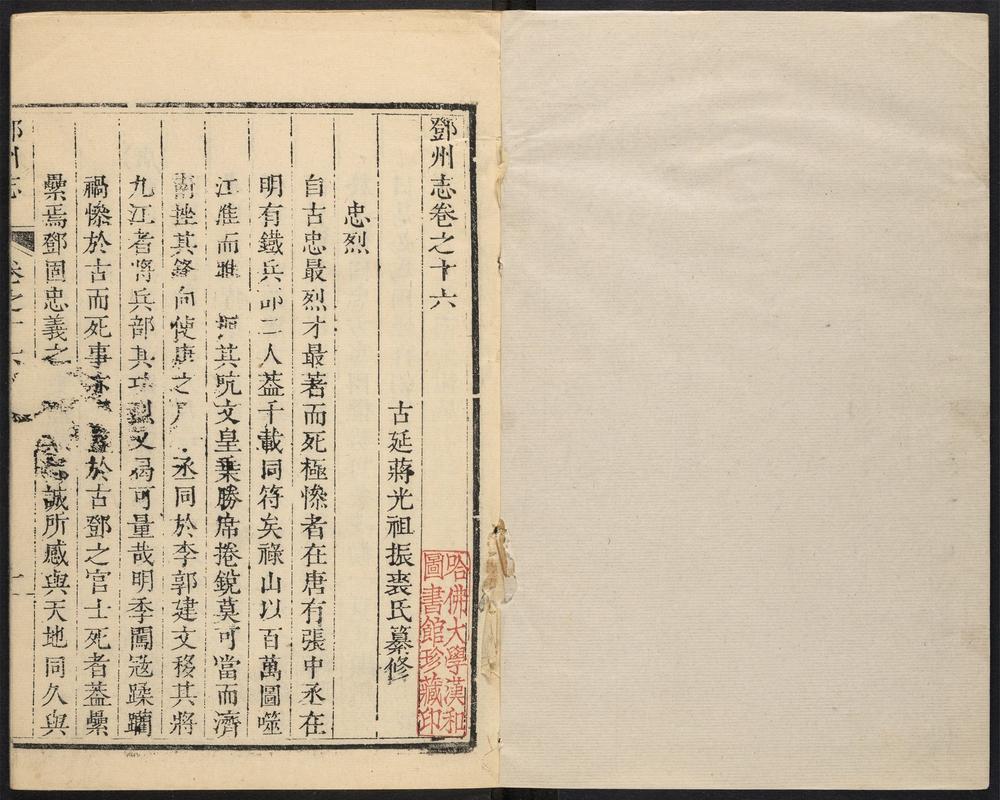 鄧州志卷之十六
古延蔣光祖振裘氏纂修
忠烈
自古忠最烈才最著而死極慘者在唐有張中丞在
明有鐵兵部二人蓋千載同符矣祿山以百萬圖噬
江淮而睢 扼其吭文皇乗勝席捲銳莫可當而濟
南挫其鋒向使唐之 丞同於李郭建文移其將
九江者將兵部其功烈又曷可量哉明季闖寇蹂躪
禍慘於古而死事亦 於古鄧之官士死者蓋纍
纍焉鄧固忠義之 誠所感與天地同久與
鄧州志 卷之十六 一
哈佛大學漢和
圖書館珍藏印